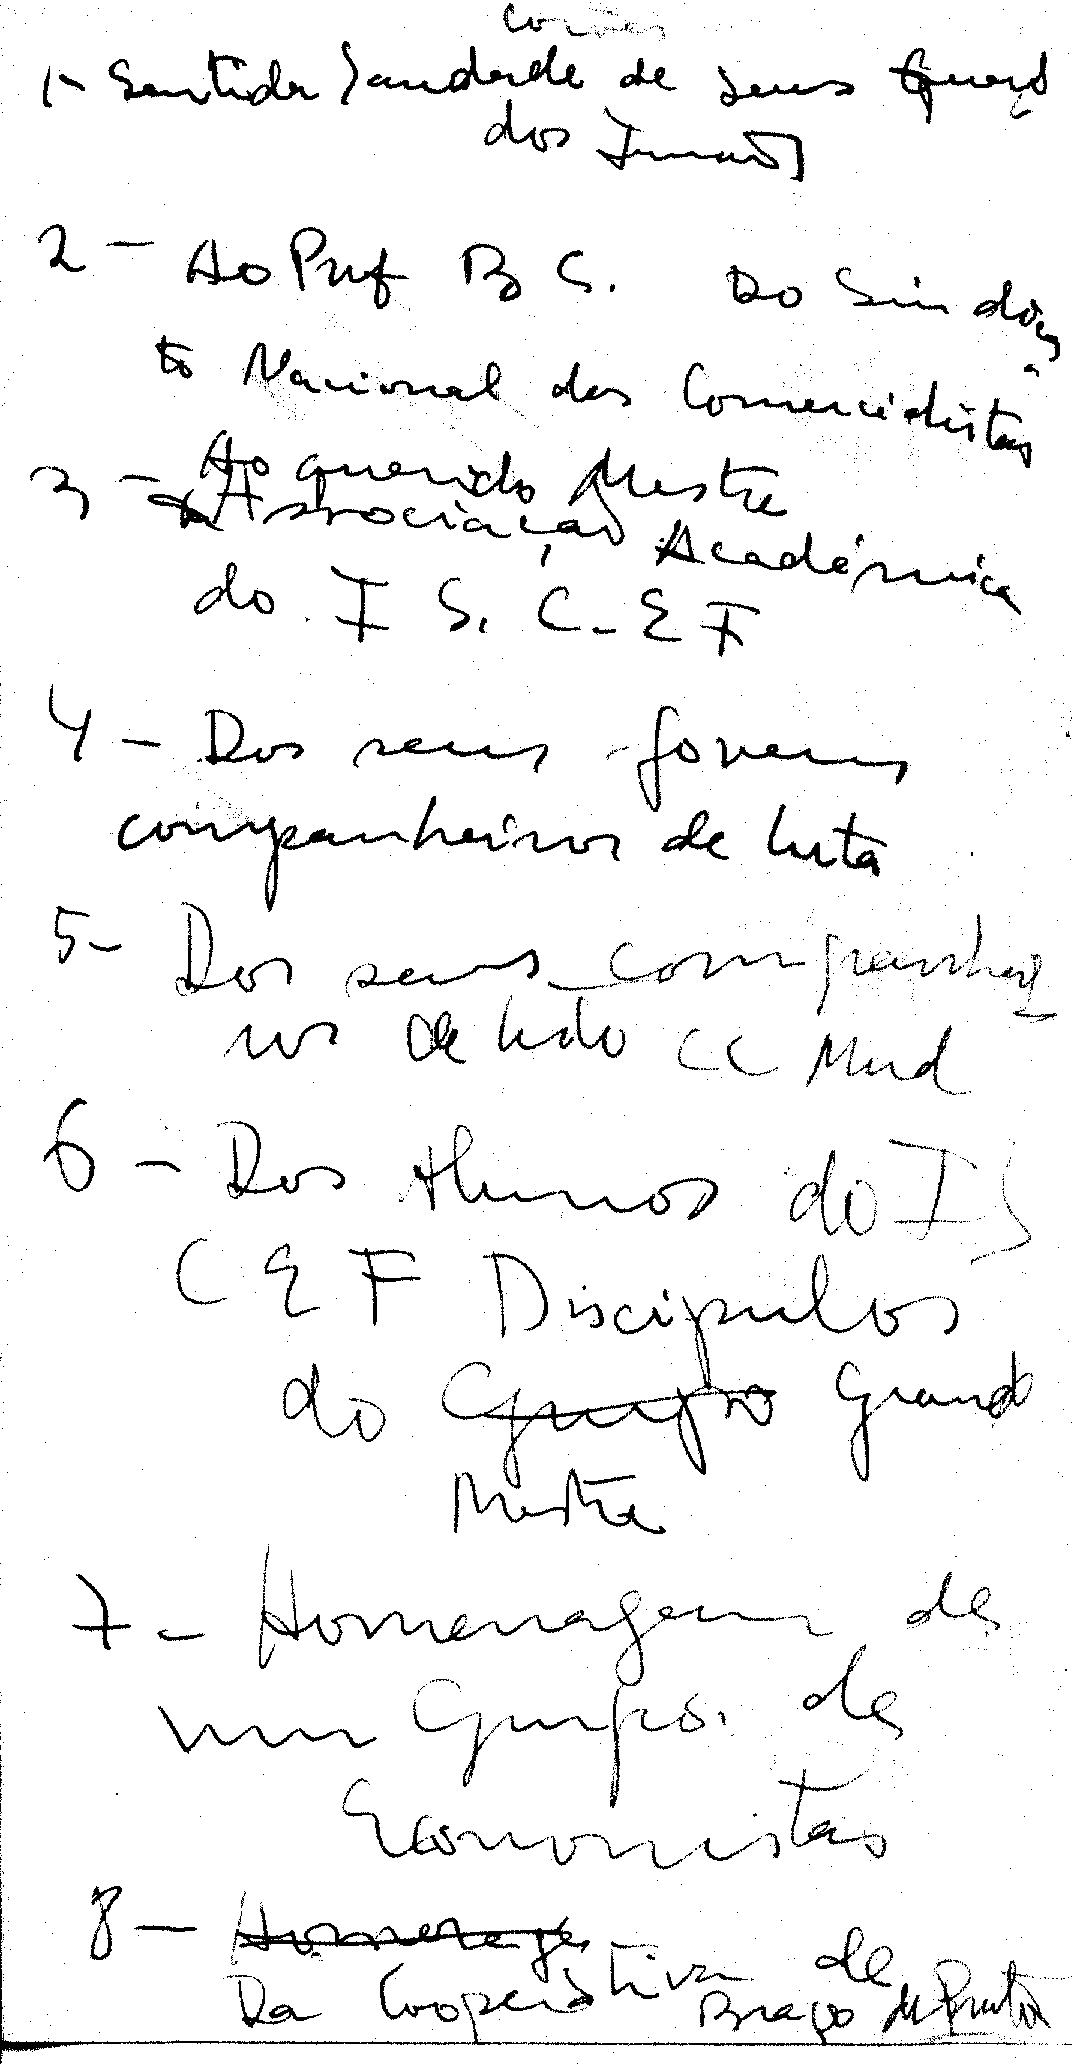 coroas
1- Sentida Saudade de seus queri
dos Irmãos
2 - Ao Prof B S. Do Sindica
to Nacional dos Comercialistas
3 - Ao querido Mestre
Associação Académica
do I S. C. E F
4 - Dos seus jovens
companheiros de luta
5- Dos seus companhei
ros de lido CC Mud
6 - Dos Alunos do I S
C E F Discipulos
do Grupo Grand
Mestre
7 - Homenagem de
um Grupo. de
Economistas
8 - Homenage
Da Cooperativa de
Braço de Prata